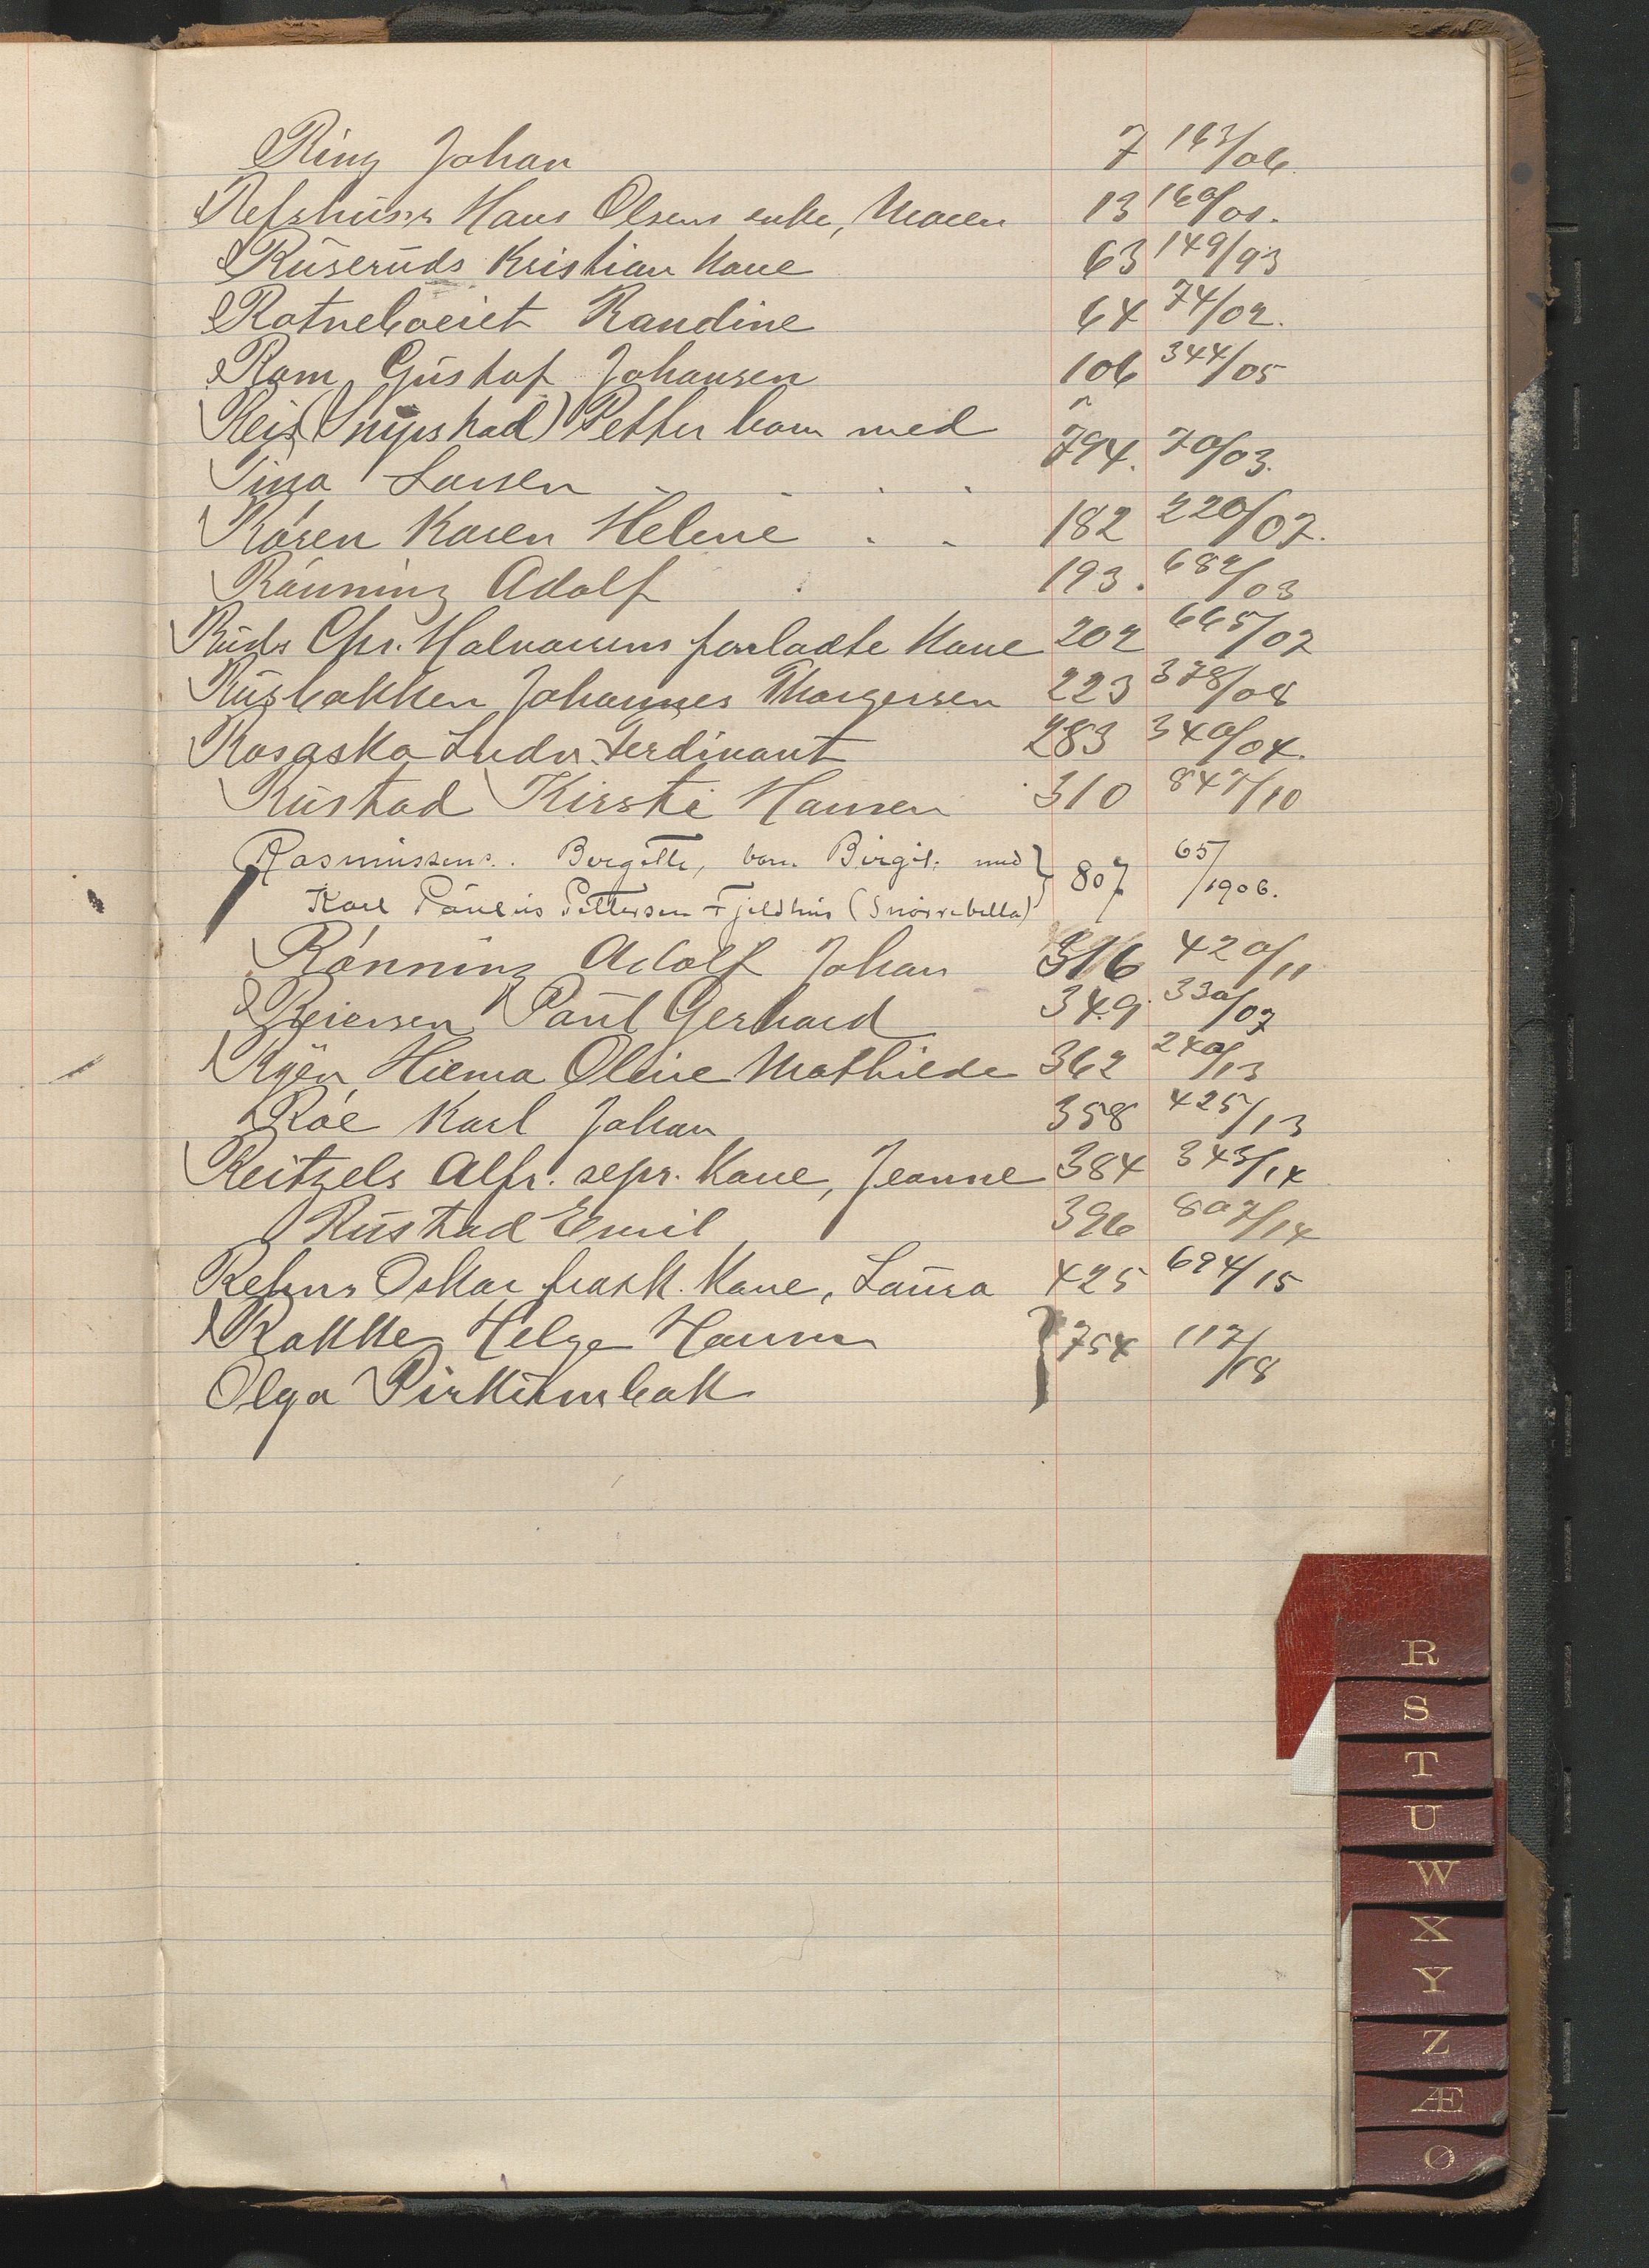 Ring Johan 7 163/06.
Refshus's Hans Olsens enke, Maren 13 160/01.
Ruseruds Kristian Kone 63 149/93
Ratneboeiet Randine 64 74/02.
Ram, Gustaf Johansen 106 344/05
Reis (Snipstad) Petter barn med
Tina Larsen 794. 70/03.
Røsen Karen Helene 182 220/07.
Rønning Adolf 193. 682/03
Ruds Chr. Halvorsens forladte Kone 202 665/07
Rusbakken Johannes Thorgersen 223 378/08
Rosaska Ludv. Ferdinant 283 340/04.
Rustad Kirsti Hansen 310 847/10
Rasmussens. Bergitte, barn Birgit. med } 807 65/1906.
Karl Paulus Pettersen Fjeldhus (Snørrebella)
Rønning Adolf Johan 316 420/11
Reiersen, Paul Gerhard 349. 330/07
Ryen, Hilma Oline Mathilde 362 240/13
Røe Karl Johan 358 425/13
Reitzels Alfr. sepr. Kone, Jeanne 384 343/14
Rustad Emil 396 807/14
Refins Oskar frask. Kone, Laura 425 694/15
Rakke, Helge Hansen } 754 117/18
Olga Pirkitunbak
R
S
T
U
W
X
Y
Z
Æ
Ø